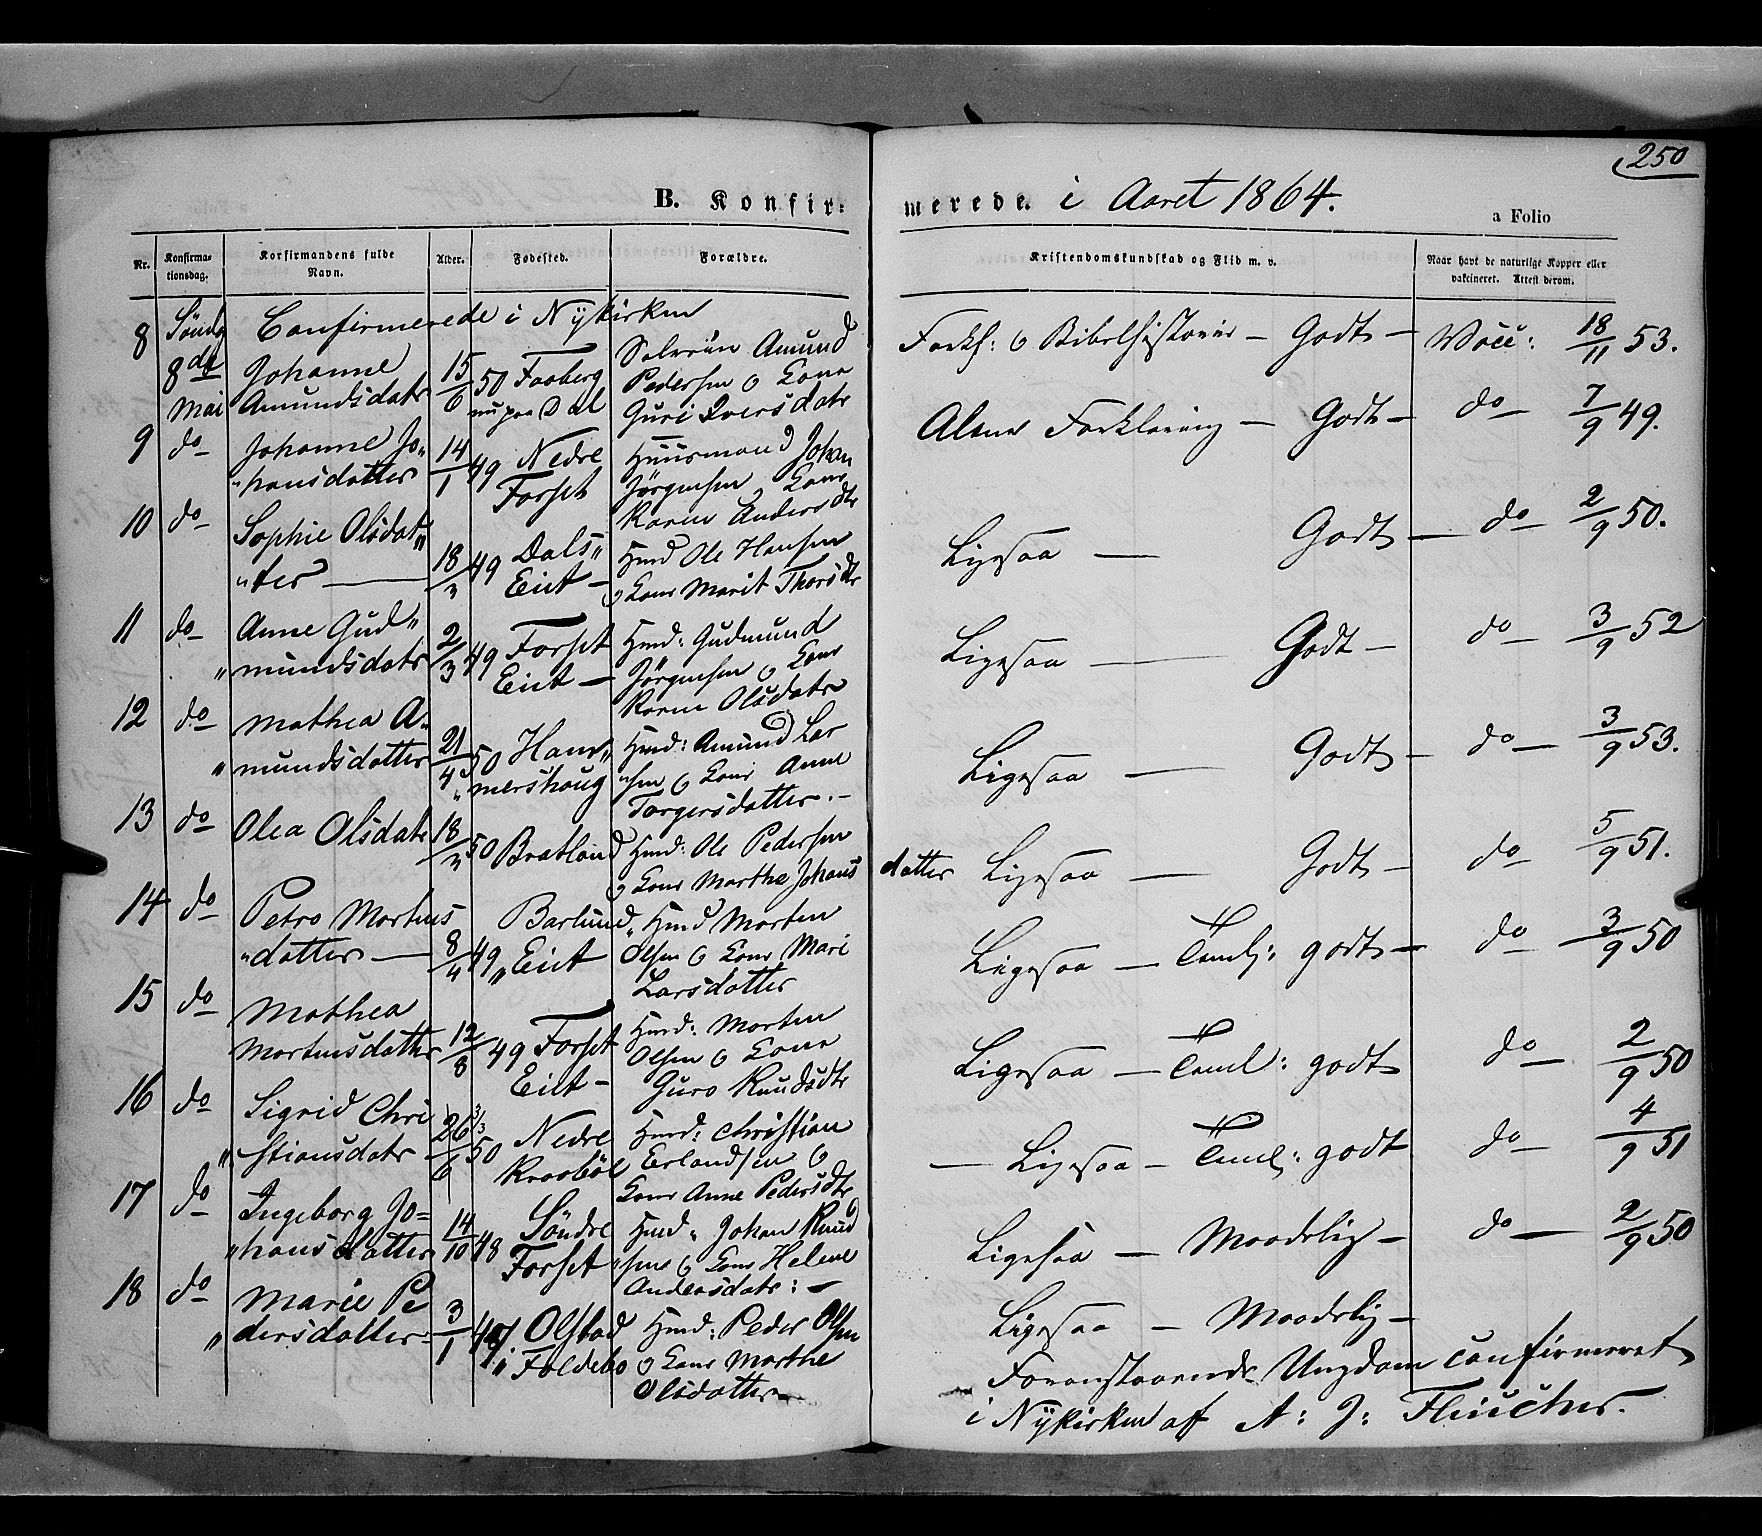 250
B. Konfir-
merede. i Aaret 1864.
a Folio
Nr.
Konfirma-
tionsdag.
Korfirmandens fulde
Navn.
Alder.
Fødested.
Forældre.
Kristendomskundskab og Flid m. v.
Naar havt de naturlige Kopper eller
vakcineret. Attest derom.
Confirmerede i Nykirken
8 Søndg
8de
Mai
Johanne
Amundsdatr
15/6 50
Faaberg
nu paa Dal
Selveier Amund
Pedersen o Kone
Guri Iversdatr
Forkl: o Bibelhistorie — Godt — Vacc: 18/11 53.
9 do
Johanne Jo„
„hansdatter
14/1 49
Nedre
Forset
Huusmand Johan
Jørgensen o Kone
Karen Andersdtr
Alene Forklaring — Godt — do — 7/9 49.
10 do
Sophie Olsdat„
„ter —
18/3 49
Dals„
Eiet —
Hmd Ole Hansen
o Kone Marit Thorsdtr
Ligesaa — Godt — do — 2/9 50.
11 do
Anne Gud„
„mundsdatr
2/3 49
Forset
Eiet —
Hmd: Gudmund
Jørgensen o Kone
Karen Olsdatr
Ligesaa — Godt — do — 3/9 52
12 do
Mathea A„
„mundsdatter
21/4 50
Ham„
„mershaug
Hmd: Amund Lar
„sen o Kone Anne
Torgersdatter. —
Ligesaa — Godt — do — 3/9 53.
13 do
Olea Olsdatr
18/3 50
Bratland
Hmd: Ole Pedersen
o Kone Marthe Johans
datter Ligesaa — Godt — do 5/9 51.
14 do
Petra Mortens
„datter —
8/4 49
Barlund„
„Eiet
Hmd Morten
Olsen o Kone Mari
Larsdatter
Ligesaa — Teml: godt — do — 3/9 50
15 do
Mathea
Mortensdatter
12/8 49
Forset
Eiet —
Hmd: Morten
Olsen o Kone
Guro Knudsdtr
Ligesaa — Teml: godt do — 2/9 50
16 do
Sigrid Chri
„stiansdatr
26/6 50
Nedre
Kraabøl
Hmd: Christian
Erlandsen o
Kone Anne Pedersdtr
— Ligesaa — Teml: godt do — 4/9 51
17 do
Ingeborg Jo=
„hansdatter
14/10 48
Søndre
Forset
Hmd„ Johan Knud
„sen o Kone Helene
Andersdatr: —
Ligesaa — Maadelig — do — 2/9 50
18 do
Marie Pe
„dersdatter
3/1
Olstad
i Foldebo
Hmd: Peder Olsen
o Kone Marthe
Olsdatter
Ligesaa — Maadelig —
Foranstaaende Ungdom confirmeret
i Nykirken af A: J: Fleischer.